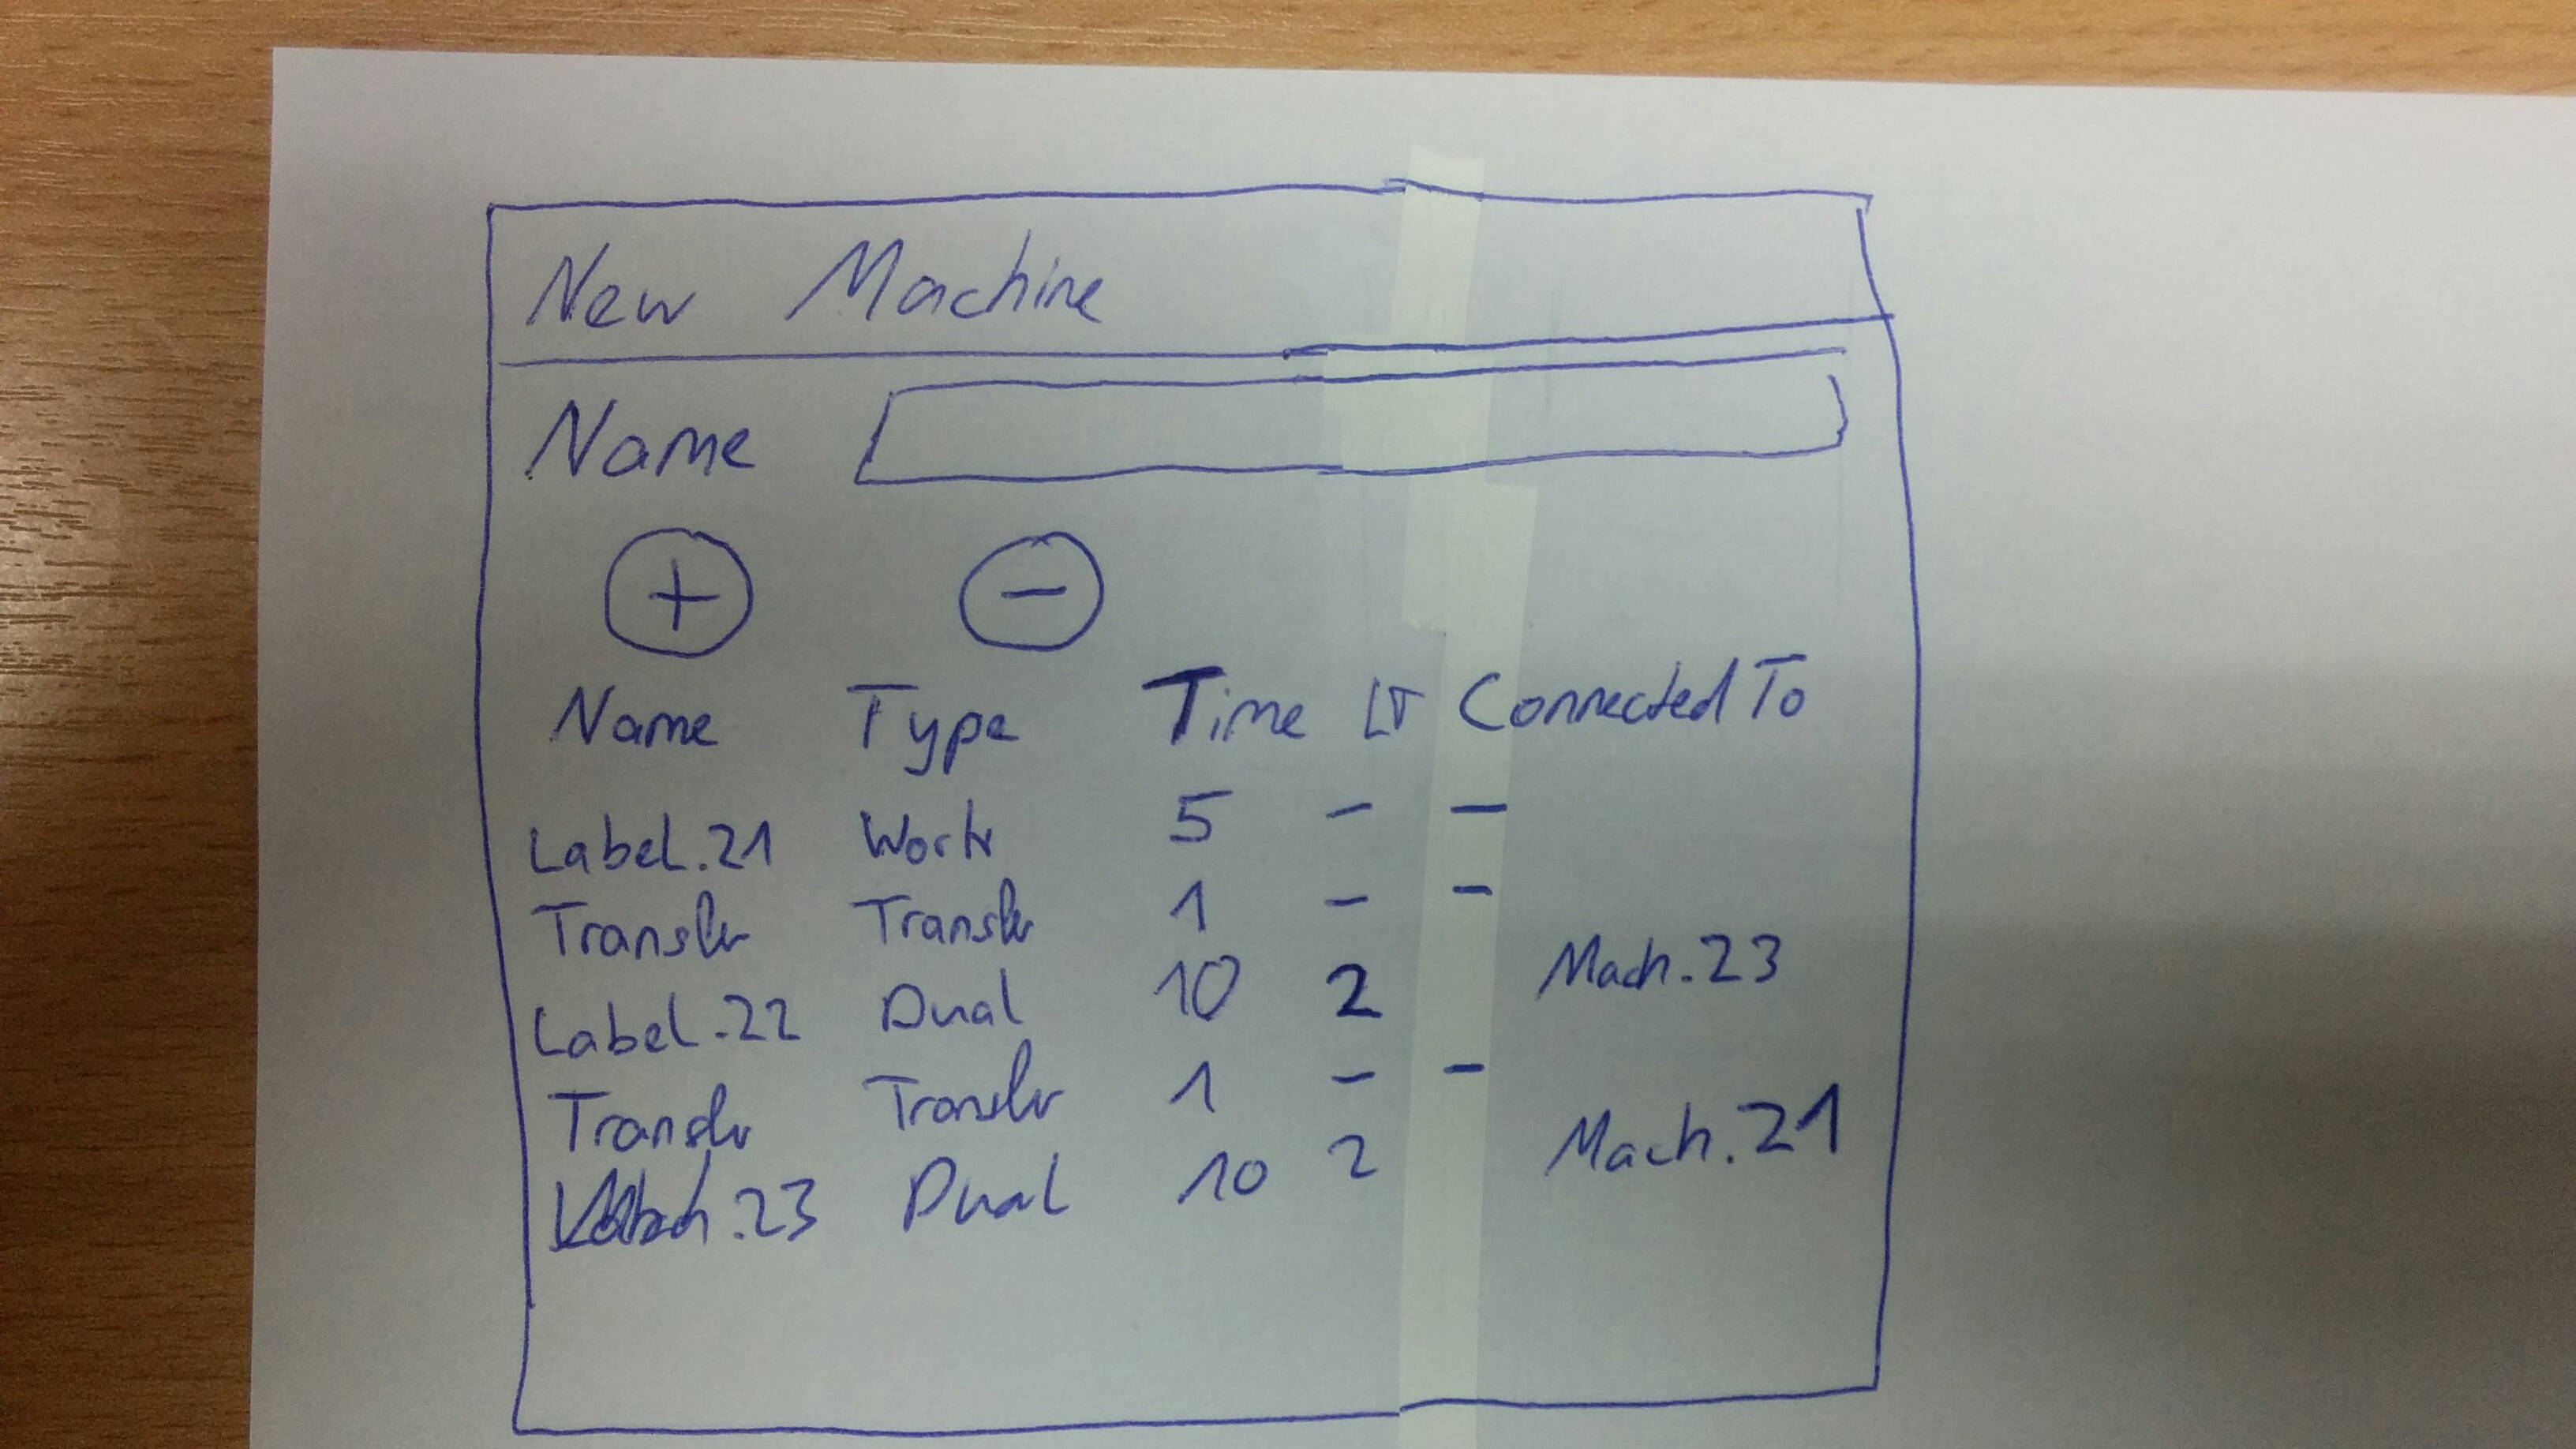 New Machine
Name
+ −
Name Type Time LT Connected To
Label.21 Work 5 – –
Transfer Transfer 1 – –
Label.22 Dual 10 2 Mach.23
Transfer Transfer 1 – –
.23 Dual 10 2 Mach.21